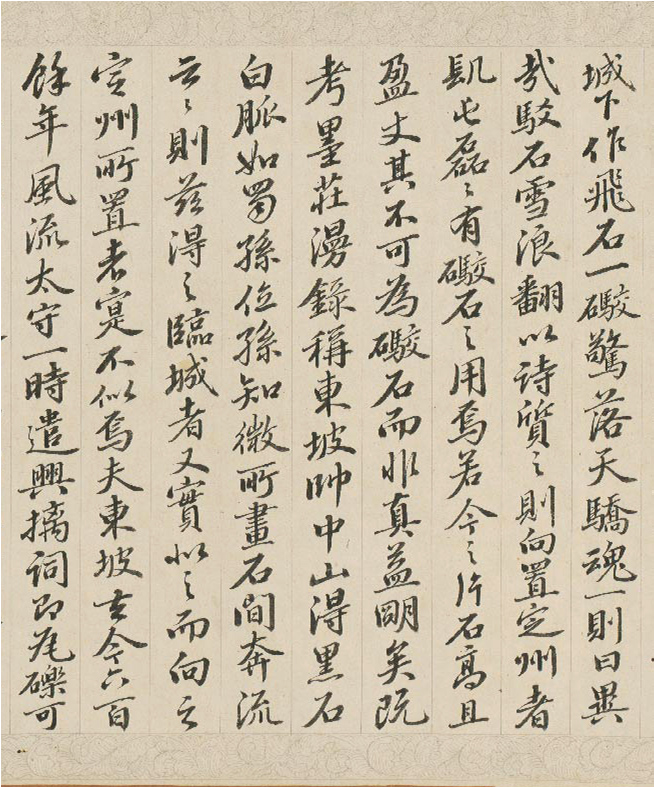 城下作飛石一礮驚落天驕魂一則曰異
哉駮石雪浪翻以诗質之則向置定州者
凱步磊〻有礮石之用焉若今之片石高且
盈丈其不可為礮石而非真益明矣既
考墨莊漫錄稱東坡帥中山得黑石
白脈如蜀孫位孫知微所畫石間奔流
云〻則茲得之臨城者又實似之而向之
定州所置者寔不似焉夫東坡去今六百
餘年風流太守一時遣興摛詞即瓦礫可